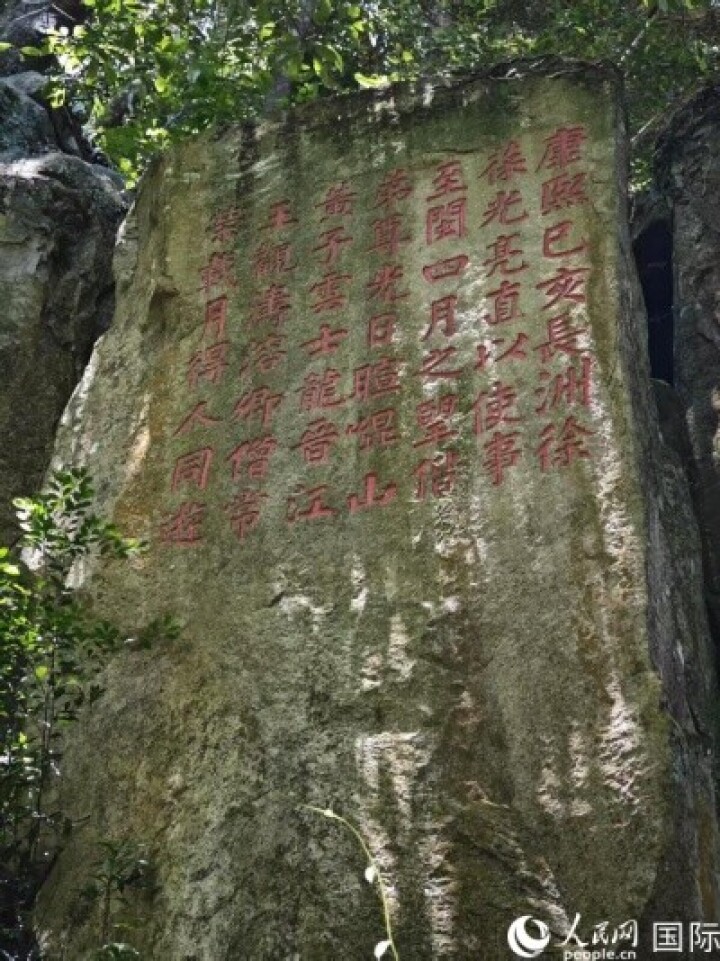 康熙己亥長洲徐
葆光亮直以使事
至閩四月之望偕
弟尊光日暄崐山
黃子雲士龍晉江
王觀濤溶卿僧常
月得人同遊
人民网 国际
people.cn